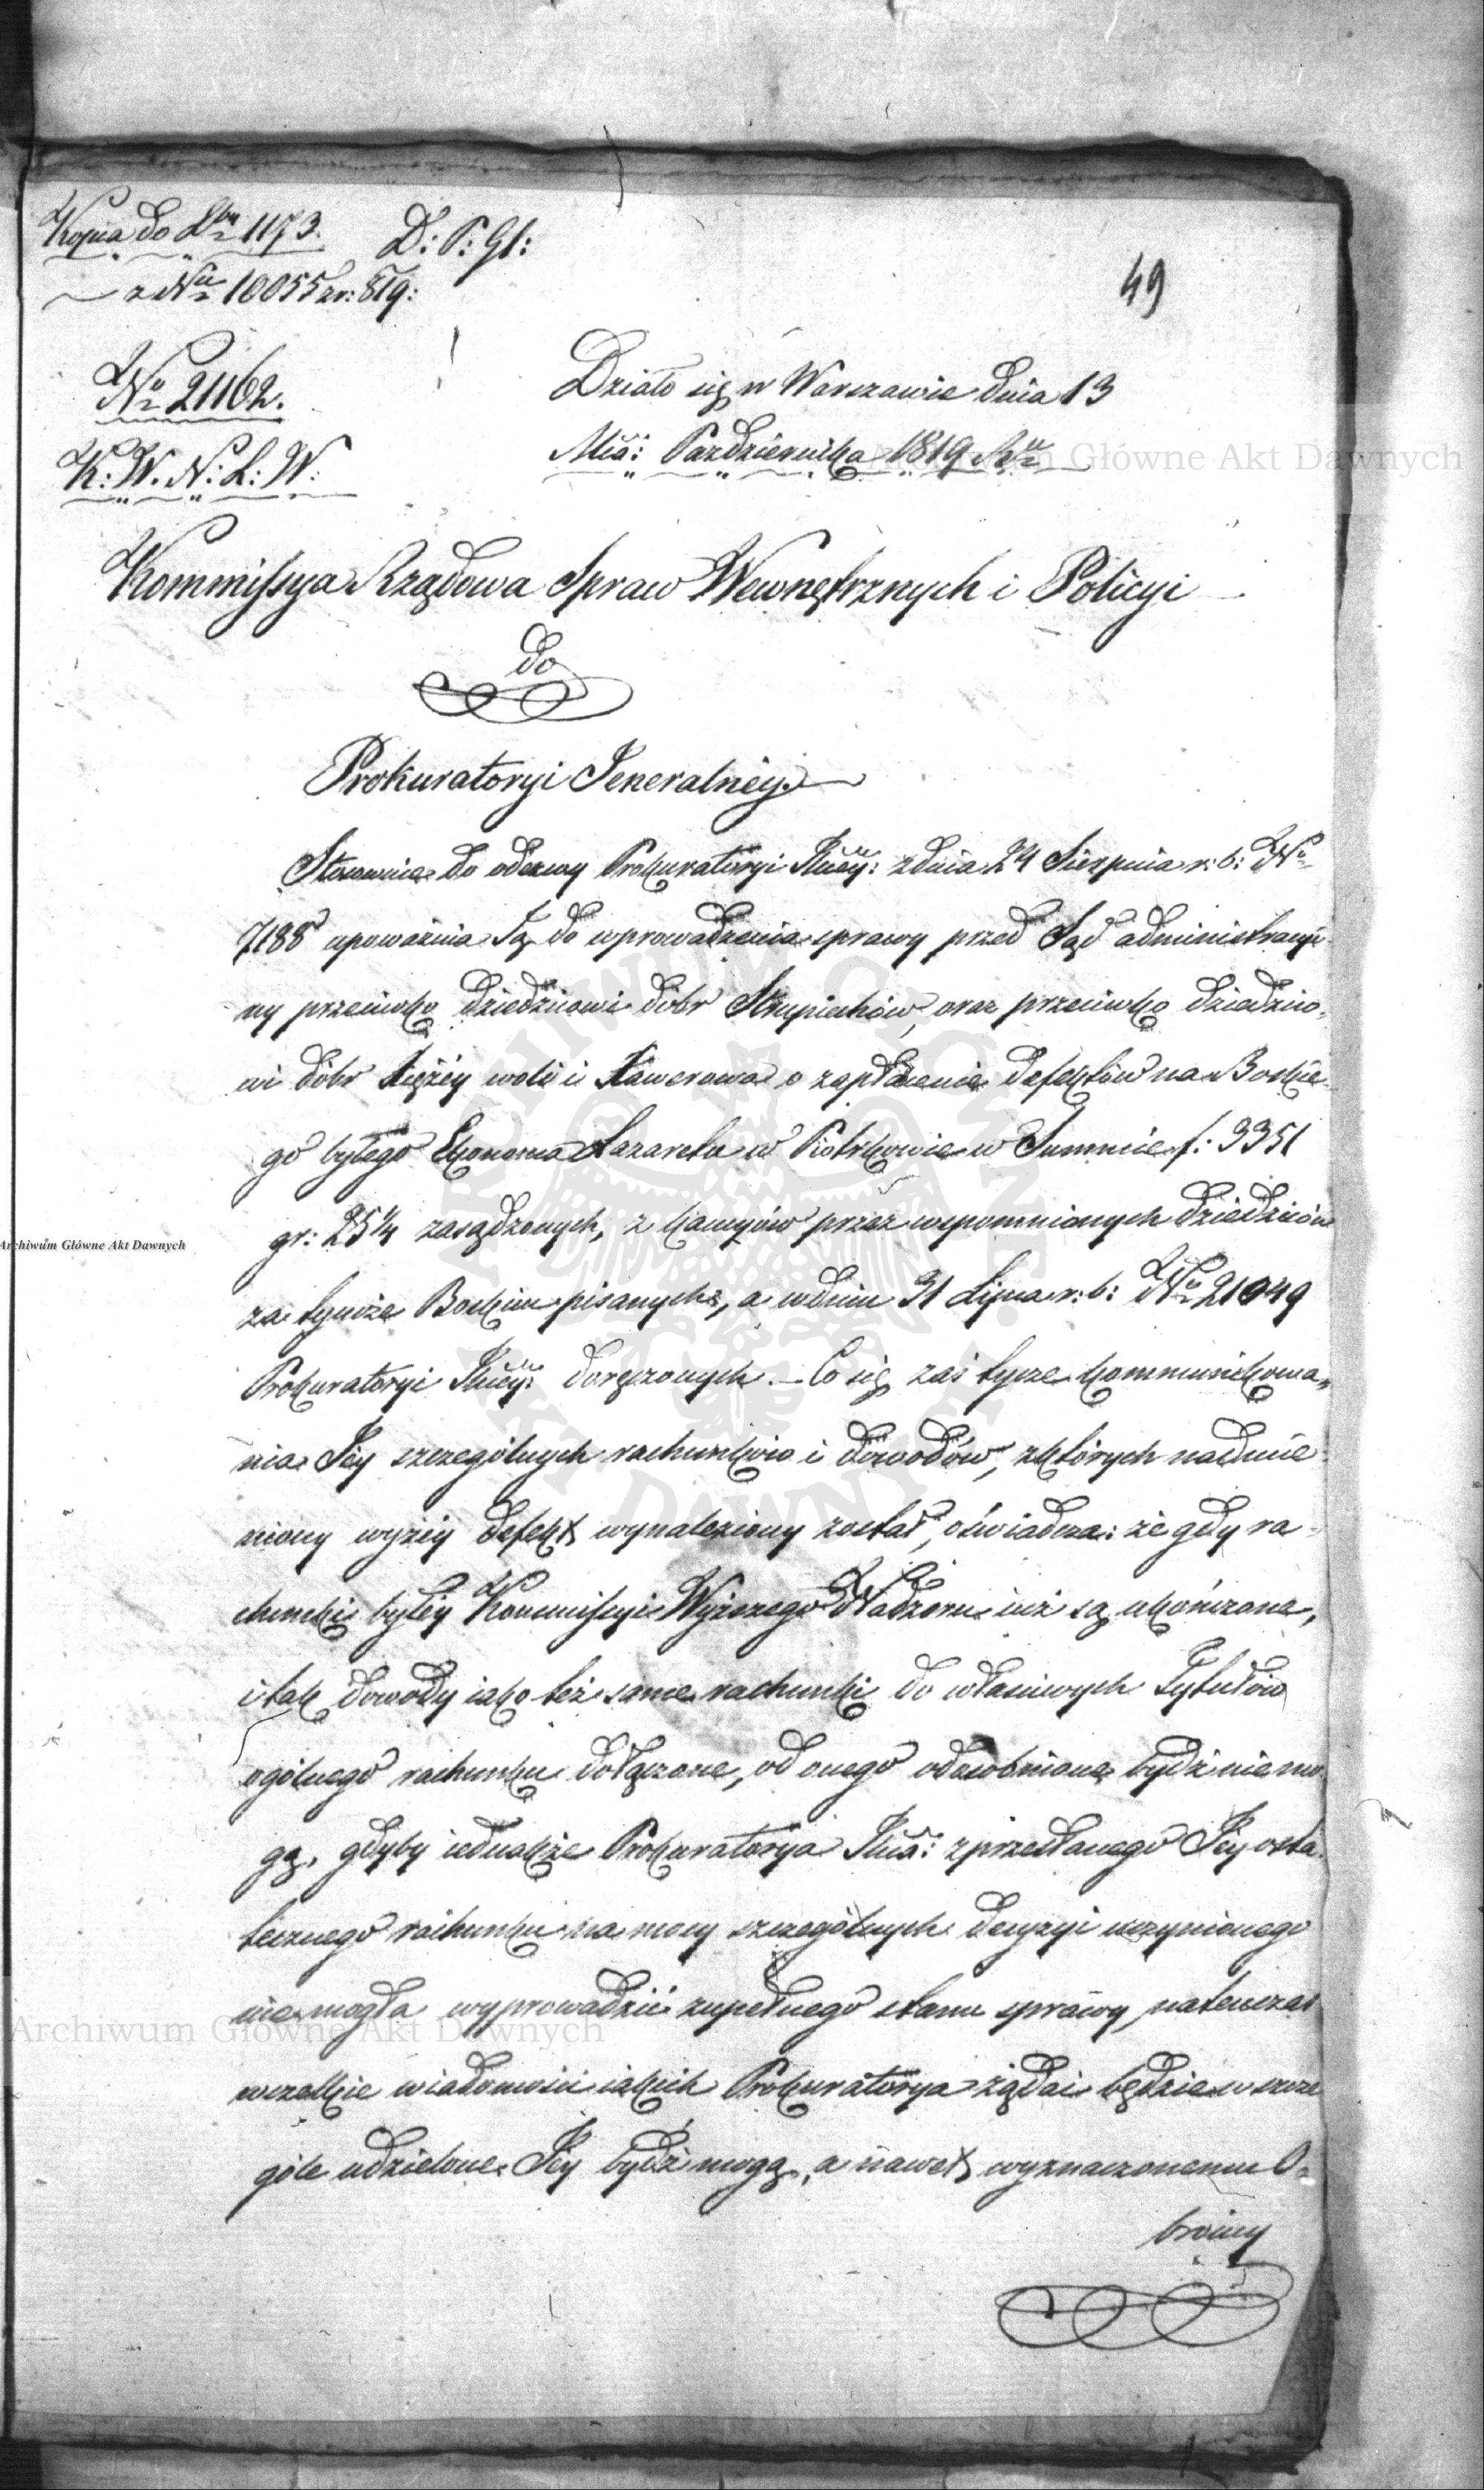 Kopia do Lbu 1173. D: P: Gl:
z Nu 10055 z r: 819:
49
No 21162.
K: W. N: L: W:
Działo się w Warszawie dnia 13
Mca: Października 1819 Ru
Kommissya Rządowa Spraw Wewnętrznych i Policyi
do
Prokuratoryi Jeneralnéy.
Stosownie do odezwy Prokuratoryi Jlnéy: z dnia 24 Sierpnia r: b: No
7188 upoważnia Ją do wprowadzenia sprawy przed Sąd administracyi-
ny przeciwko dziedzicowi dóbr Strupiechów, oraz przeciwko dziedzico-
wi dóbr Xiężéy woli i Xawerowa o zapłacenie defektów na Boskie-
go byłego Ekonoma Lazaretu w Piotrkowie w Summie f: 3351
gr: 25 1/4 zasądzonych, z kaucyów przez wspomnionych dziedziców
za tymże Boskim pisanych, a w dniu 31 Lipca r: b: No 21049
Prokuratoryi Jlnéy: doręczonych. – Co się zaś tycze kommunikowa„
nia Jéy szczególnych rachunków i dowodów, z których nadmie-
niony wyżéy defekt wynaleziony został, oświadcza: że gdy ra-
chunki byłéy Kommissyi Wyższego Nadzoru już są ukończone,
i tak dowody iako też same rachunki do właściwych Tytułów
ogólnego rachunku dołączone, od onego odosobnione bydź nie mo-
gą, gdyby iednakże Prokuratorya Jlna: z przesłanego Jéy osta-
tecznego rachunku na mocy szczególnych decyzyi uczynionego
nie mogła wyprowadzić zupełnego stanu sprawy, natenczas
wszelkie wiadomości iakich Prokuratorya żądać będzie w szcze
góle udzielone Jéy bydź mogą, a nawet wyznaczonemu O-
brońcy
Archiwum Główne Akt Dawnych
Archiwum Główne Akt Dawnych
Archiwum Główne Akt Dawnych
ARCHIWUM GŁÓWNE AKT DAWNYCH